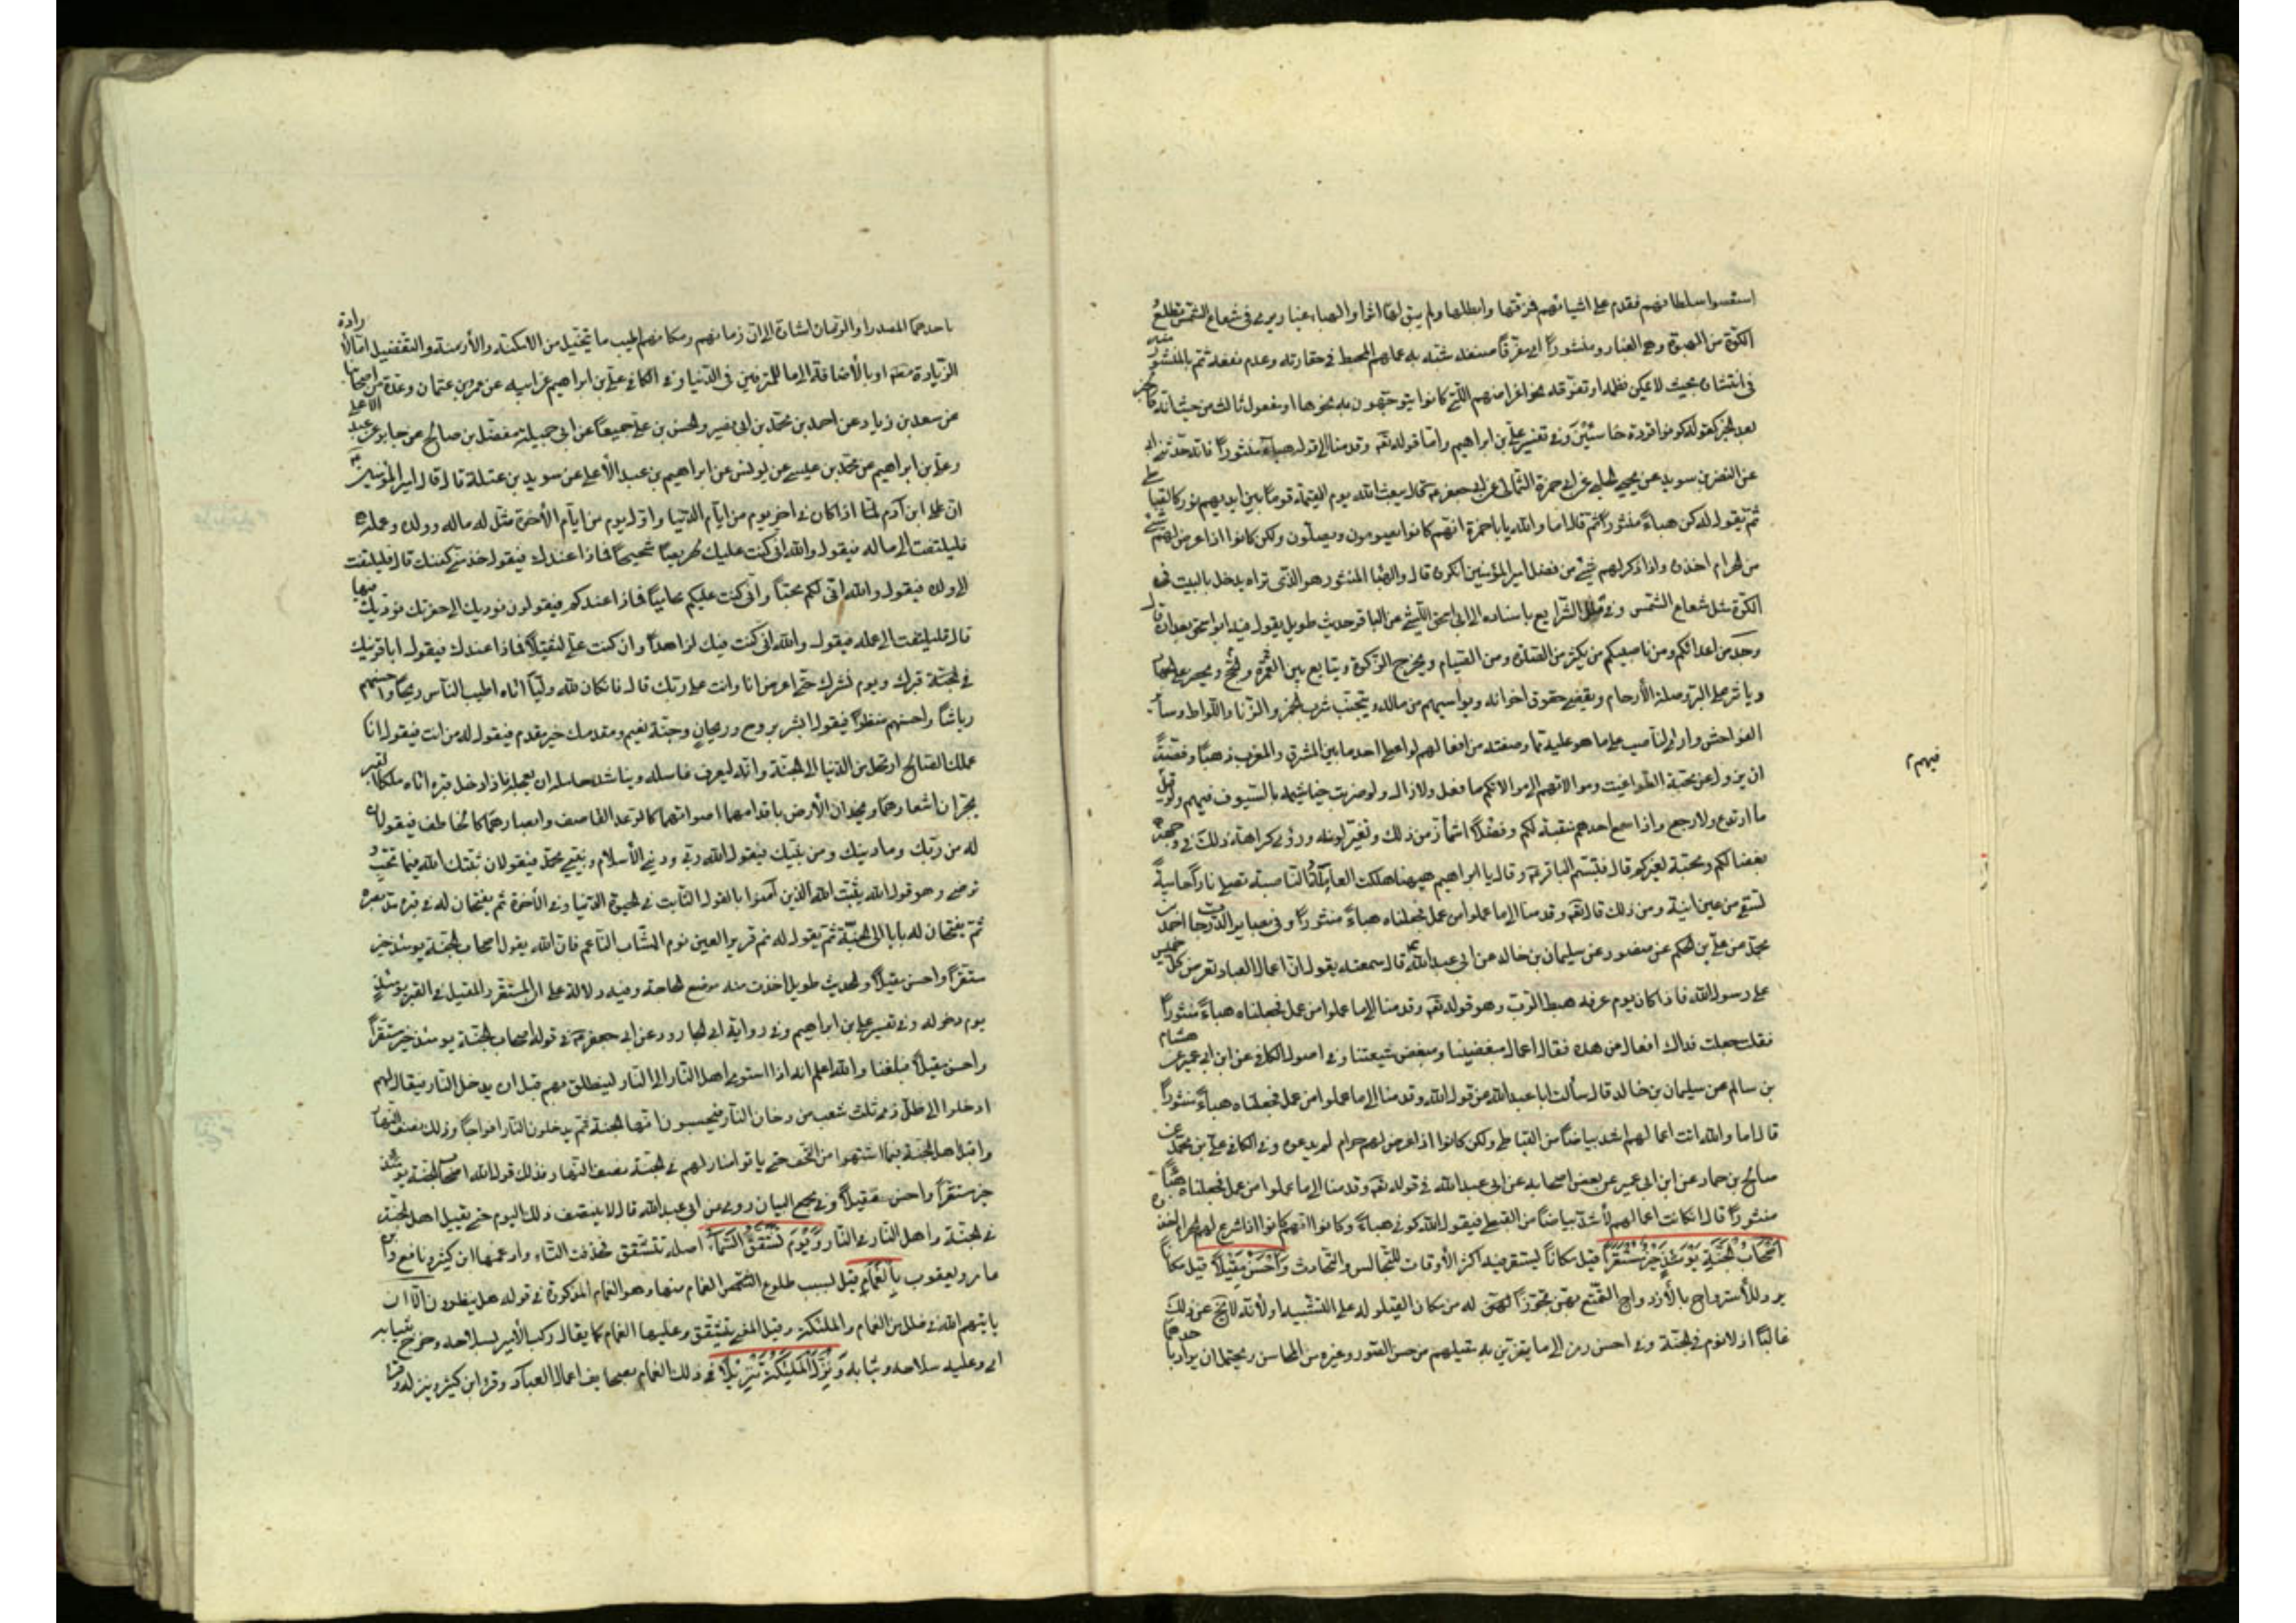 استعسوا سلطانهم فقدم على اشيائهم فمزقها وابطلها ولم يبق لها اثرا والهباء غبار يرى في شعاع الشمس يطلع
الكوة من الهبوة وهو الغبار ومنثوراً اي مفرقاً صفته شبه به عملهم المحبط في حقارته وعدم نفعه ثم بالمنثور منه
في انتشاره بحيث لا يمكن نظمه او تفرقه نحو اغراضهم التي كانوا يتوجهون به نحوها او مفعول ثالث من حيث انه كالخبر
بعد الخبر كقوله كونوا قردة خاسئين وفي تفسير علي بن ابراهيم واما قوله تعه وقدمنا الى قوله هباء منثوراً فانه حدثني ابي
عن النضر بن سويد عن يحيى الحلبي عن ابي حمزة الثمالي عن ابي جعفر عه قال يبعث الله يوم القيمة قوماً بين ايديهم نور كالقباطي
ثم يقول له كن هباءً منثوراً ثم قال اما والله يا باحمزة انهم كانوا يصومون ويصلون ولكن كانوا اذا عرض لهم شئ
من الحرام اخذوه واذا ذكر لهم شئ من فضل امير المؤمنين انكروه قال والهباء المنثور هو الذي تراه يدخل بالبيت في
الكوة مثل شعاع الشمس وفي علل الشرايع باسناده الى ابي اسحق الليثي عن الباقر حديث طويل يقول فيه ابو اسحق بعد ان قال
وجد من اعدائكم ومن ناصبيكم من يكثر من الصلوة ومن الصيام ويخرج الزكوة ويتابع بين العمرة والحج ويحرص على الجهاد
ويأثر على البر وصلة الأرحام ويقضي حقوق اخوانه ويواسيهم من ماله ويتجنب شرب الخمر والزنا واللواط وسائر
الفواحش وارى الناصب على ما هو عليه مما وصفته من افعالهم لو اعطي احد ما بين المشرق والمغرب ذهباً وفضةً
ان يزول عن محبة الطواغيت وموالاتهم الى موالاتكم ما فعل ولا زال ولو ضربت خياشيمه بالسيوف فيهم ولو قتل
فيهم
ما ارتدع ولا رجع واذا سمع احدهم منقبة لكم وفضلاً اشمأز من ذلك وتغير لونه ورؤي كراهة ذلك في وجهه
بغضا لكم ومحبة لغيركم قال فتبسم الباقر عه وقال يا ابراهيم هيهنا هلكت العاملة الناصبة تصلى ناراً حامية
تسقى من عين انية ومن ذلك قال تعه وقدمنا الى ما عملوا من عمل فجعلناه هباءً منثوراً وفي بصاير الدرجات احمد بن
محمد عن علي بن الحكم عن منصور عن سليمان بن خالد عن ابي عبد الله قال سمعته يقول ان اعمال العباد تعرض كل خميس
على رسول الله فاذا كان يوم عرفة هبط الرب وهو قوله تعه وقدمنا الى ما عملوا من عمل فجعلناه هباءً منثوراً
فقلت جعلت فداك افعال من هذه فقال اعمال مبغضينا ومبغض شيعتنا وفي اصول الكافي عن ابن ابي عمير عن هشام
بن سالم عن سليمان بن خالد قال سألت ابا عبد الله عن قول الله وقدمنا الى ما عملوا من عمل فجعلناه هباءً منثوراً
قال اما والله انت اعمالهم اشد بياضاً من القباطي ولكن كانوا اذا عرض لهم حرام لم يدعوه وفي الكافي علي بن محمد عن
صالح بن حماد عن ابن ابي عمير عن بعض اصحابه عن ابي عبد الله في قوله تعه وقدمنا الى ما عملوا من عمل فجعلناه هباءً
منثوراً قال ان كانت اعمالهم لأشد بياضاً من القبطي فيقول الله كوني هباءً وكانوا انهم كانوا اذا شرع لهم الحرام اخذوه
اصحاب الجنة يومئذ خير مستقراً قيل مكاناً ليستقر فيه اكثر الأوقات للتجالس والتحادث واحسن مقيلاً قيل مكاناً
يروى للأسترواح بالأزواج التمتع بهن تجوزاً لهن له من مكان القيلولة على التشبيه او لأنه لا يخ عن ذلك
غالباً اذ لا نوم في الجنة وفي احسن رمز الى ما يتزين به مقيلهم من حسن الصور وغيره من المحاسن ويحتمل ان يراد باحدهما
باحدهما المصدر او الزمان اشارة الى ان زمانهم ومكانهم اطيب ما يتخيل من الامكنة والأزمنة والتفضيل اما لأرادة
الزيادة مطلقة او بالأضافة الى ما للمترفين في الدنيا وفي الكافي علي بن ابراهيم عن ابيه عن عمرو بن عثمان وعدة من اصحابنا
عن سعد بن زياد عن احمد بن محمد بن ابي نصر والحسن بن علي جميعاً عن ابي جميلة مفضل بن صالح عن جابر عن عبد الأعلى
وعلي بن ابراهيم عن محمد بن عيسى عن يونس عن ابراهيم بن عبد الأعلى عن سويد بن غفلة قال قال امير المؤمنين عه
ان ابن آدم لمّا اذا كان في اخر يوم من ايام الدنيا واول يوم من ايام الأخرة مثل له ماله وولده وعمله
فليلتفت الى ماله فيقول والله اني كنت عليك حريصاً شحيحاً فماذا عندك فيقول خذ مني كفنك قال فليلتفت
الى ولده فيقول والله اني لكم محباً واني كنت عليكم محامياً فماذا عندكم فيقولون نوديك الى حفرتك نوديك فيها
قال فليلتفت الى عمله فيقول والله اني كنت فيك لزاهداً وان كنت علي لثقيلاً فماذا عندك فيقول انا قرينك
في الجنة قبرك ويوم نشرك حتى اعرض انا وانت على ربك قال فان كان لله ولياً اتاه اطيب الناس ريحاً واحسنهم
رياشاً واحسنهم منظراً فيقول ابشر بروح وريحان وجنة نعيم ومقدمك خير مقدم فيقول له من انت فيقول انا
عملك الصالح ارتحل من الدنيا الى الجنة وانه ليعرف غاسله ويناشد حامله ان يعجله فاذا دخل قبره اتاه ملكا القبر
يجران اشعارهما ويخدان الأرض باقدامهما اصواتهما كالرعد القاصف وابصارهما كالخاطف فيقولان
له من ربك وما دينك ومن نبيك فيقول الله ربي وديني الأسلام ونبيي محمد فيقولان ثبتك الله فيما تحب و
ترضى وهو قول الله يثبت الله الذين آمنوا بالقول الثابت في الحيوة الدنيا وفي الأخرة ثم يفتحان له في قبره مد بصره
ثم يفتحان له بابا الى الجنة ثم يقول له نم قرير العين نوم الشاب الناعم فان الله يقول اصحاب الجنة يومئذ خير
مستقراً واحسن مقيلاً والحديث طويل اخذت منه موضع الحاجة وفيه دلالة على ان المستقر والمقيل في القبر يومئذ
يوم دخوله وفي تفسير علي بن ابراهيم وفي رواية ابي الجارود عن ابي جعفر عه في قوله اصحاب الجنة يومئذ خير مستقراً
واحسن مقيلاً فبلغنا والله اعلم انه اذا استوى اهل النار الى النار لينطلق بهم قبل ان يدخل النار فيقال لهم
ادخلوا الى ظل ذي ثلث شعب من دخان النار فيحسبون انها الجنة ثم يدخلون النار افواجاً وذلك نصف النهار
واقبل اهل الجنة فيما اشتهوا من التحف حتى ياتوا منازلهم في الجنة نصف النهار فذلك قول الله اصحاب الجنة يومئذ
خير مستقراً واحسن مقيلاً وفي مجمع البيان روى عن ابي عبد الله قال لا ينتصف ذلك اليوم حتى يقيل اهل الجنة
في الجنة واهل النار في النار ويوم تشقق السماء اصله تتشقق فحذفت التاء وادغمها ابن كثير ونافع وابن
عامر ويعقوب بالغمام قيل لسبب طلوع الشمس الغمام منها وهو الغمام المذكورة في قوله هل ينظرون الا ان
يأتيهم الله في ظلل من الغمام والملئكة وقيل المعنى تتشقق وعليها الغمام كما يقال ركب الأمير بسلاحه وخرج بثيابه
اي وعليه سلاحه وثيابه وينزل الملئكة تنزيلاً في ذلك الغمام بصحايف اعمال العباد وقرء ابن كثير وننزل